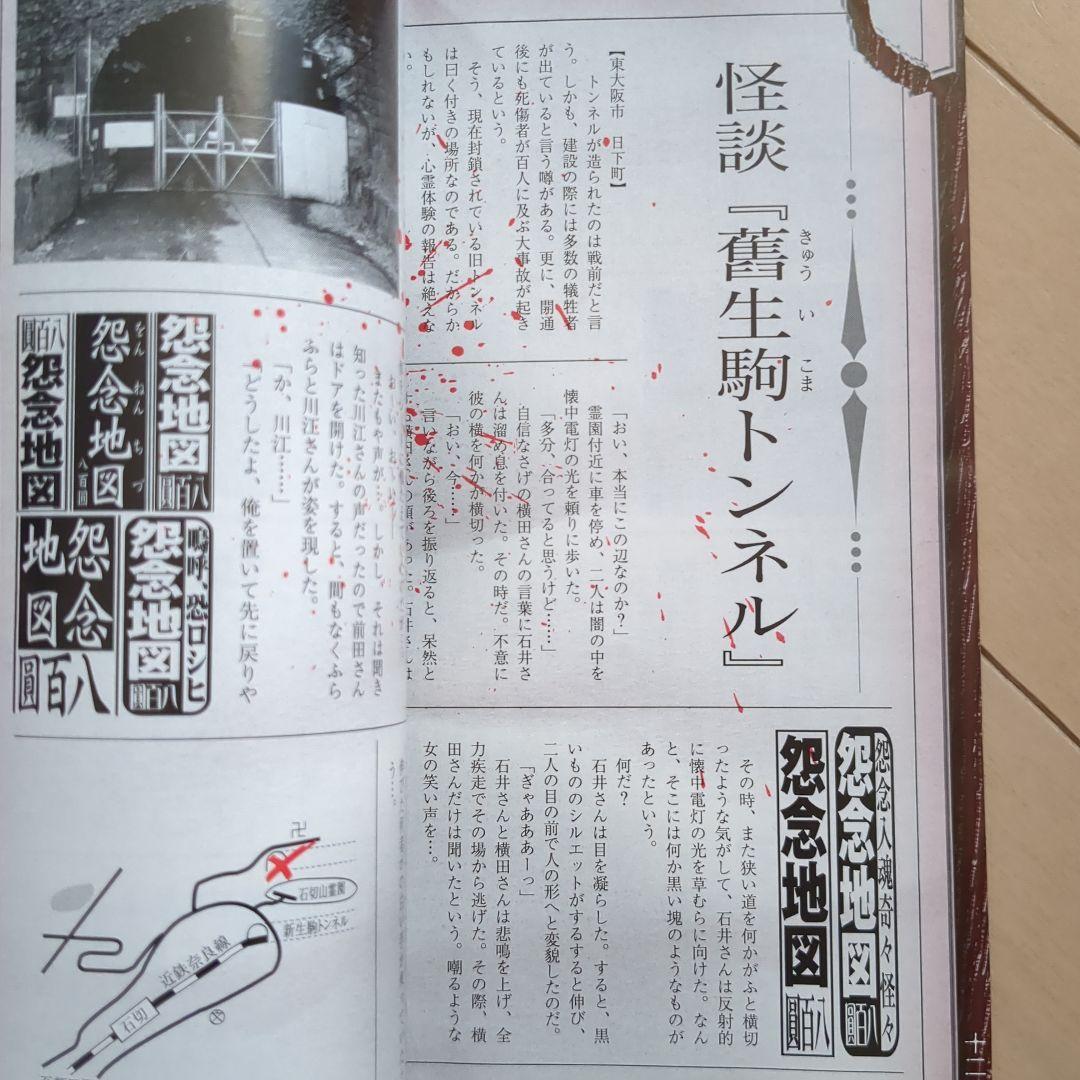 怪談『舊生駒トンネル』
きゅう い こま
【東大阪市 日下町】
トンネルが造られたのは戦前だと言
う。しかも、建設の際には多数の犠牲者
が出ていると言う噂がある。更に、開通
後にも死傷者が百人に及ぶ大事故が起き
ているという。
そう、現在封鎖されている旧トンネル
は曰く付きの場所なのである。だからか
もしれないが、心霊体験の報告は絶えな
い。
「おい、本当にこの辺なのか?」
霊園付近に車を停め、二人は闇の中を
懐中電灯の光を頼りに歩いた。
「多分、合ってると思うけど……」
自信なさげの横田さんの言葉に石井さ
んは溜め息を付いた。その時だ。不意に
彼の横を何かが横切った。
「おい、今……」
言いながら後ろを振り返ると、呆然と
怨念入魂奇々怪々
怨念地図
八百圓
怨念地図
八百圓
その時、また狭い道を何かがふと横切
ったような気がして、石井さんは反射的
に懐中電灯の光を草むらに向けた。なん
と、そこには何か黒い塊のようなものが
あったという。
何だ?
石井さんは目を凝らした。すると、黒
いもののシルエットがするすると伸び、
二人の目の前で人の形へと変貌したのだ。
「ぎゃあああーっ」
石井さんと横田さんは悲鳴を上げ、全
力疾走でその場から逃げた。その際、横
田さんだけは聞いたという。嘲るような
女の笑い声を…。
十二
またもや声が…。しかし、それは聞き
知った川江さんの声だったので前田さん
はドアを開けた。すると、間もなくふら
ふらと川江さんが姿を現した。
「か、川江……」
「どうしたよ、俺を置いて先に戻りや
怨念地図
八百圓
をんねんちづ
怨念地図
八百圓
八百圓
怨念地図
嗚呼、恐ロシヒ
怨念地図
八百圓
怨念地図
八百圓
う…。
卍
石切山霊園
新生駒トンネル
近鉄奈良線
石切